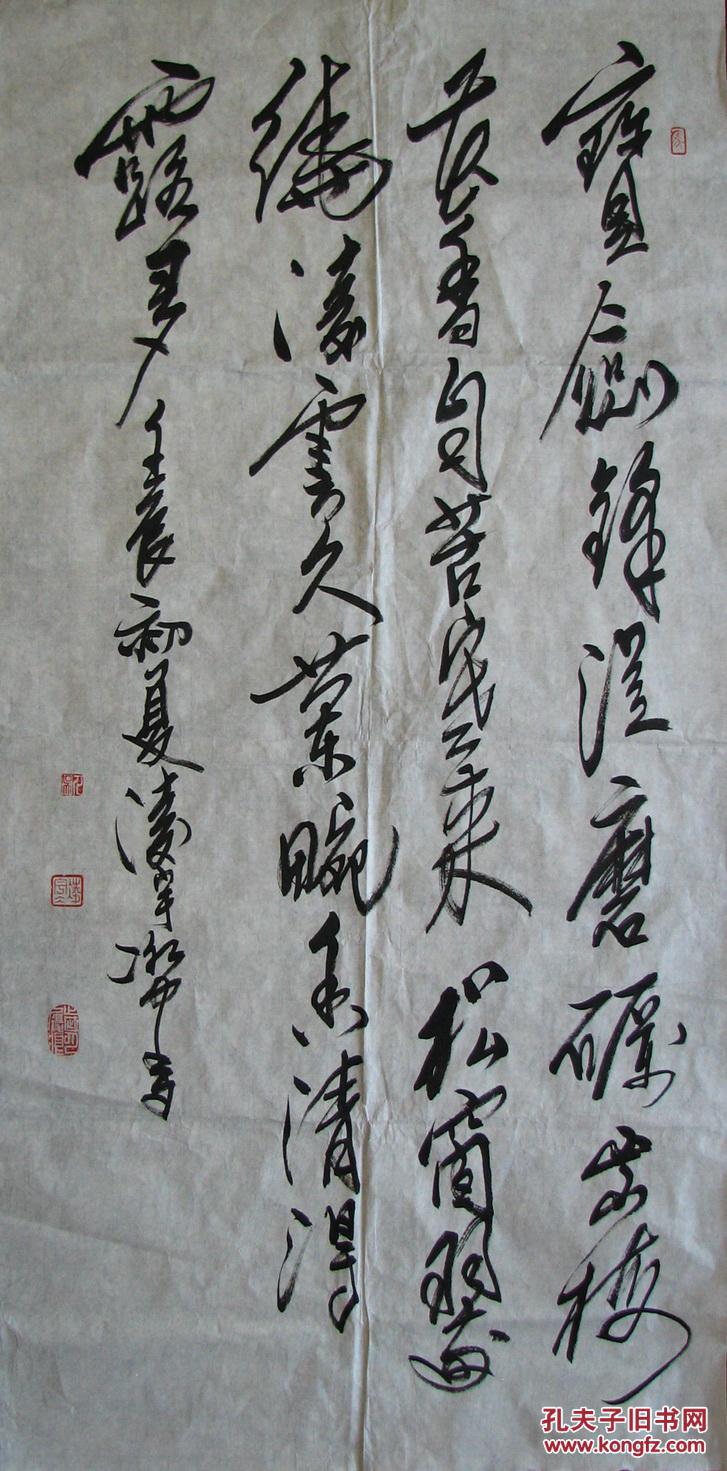 寶劍鋒從磨礪出梅
花香自苦寒來松窗
凌雲久蘭畹香清得
露多壬辰初夏凌宇書
孔夫子旧书网
www.kongfz.com